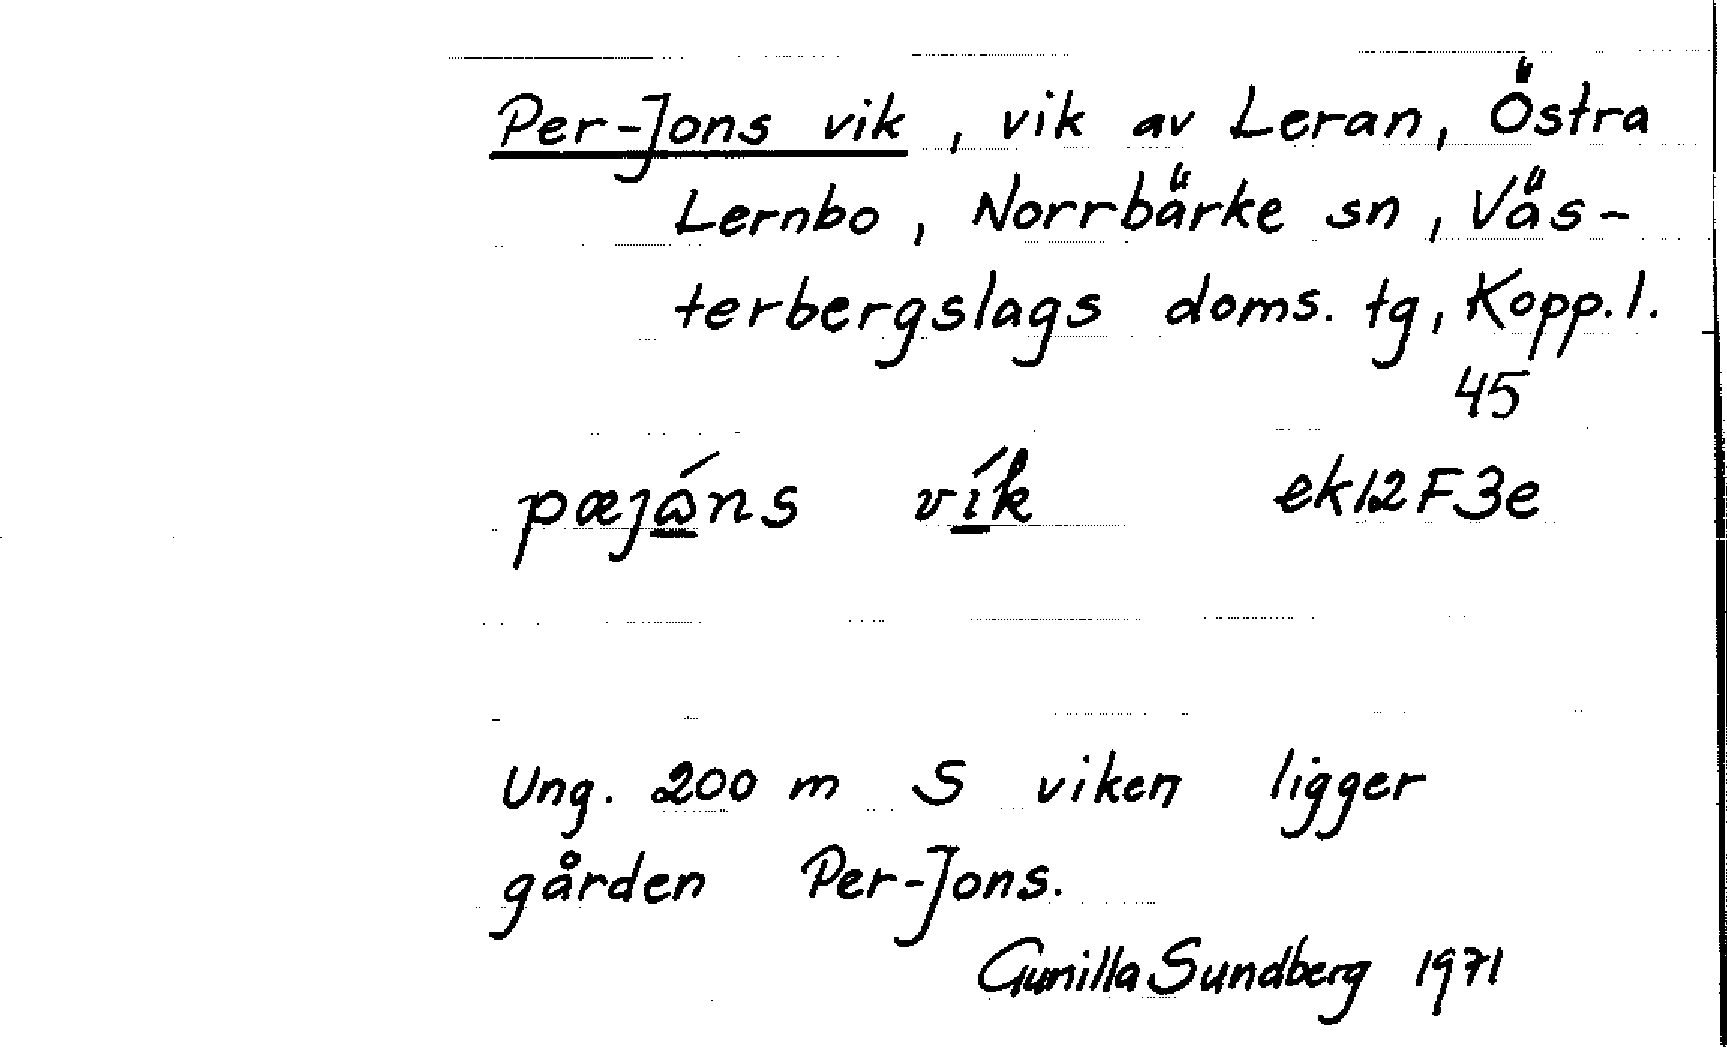 Per-Jons vik, vik av Leran, Östra
Lernbo, Norrbärke sn, Väs-
terbergslags doms. tg, Kopp. l.
45
pæjåns vík ek 12F3e
Ung. 200 m S viken ligger
gården Per-Jons.
Gunilla Sundberg 1971